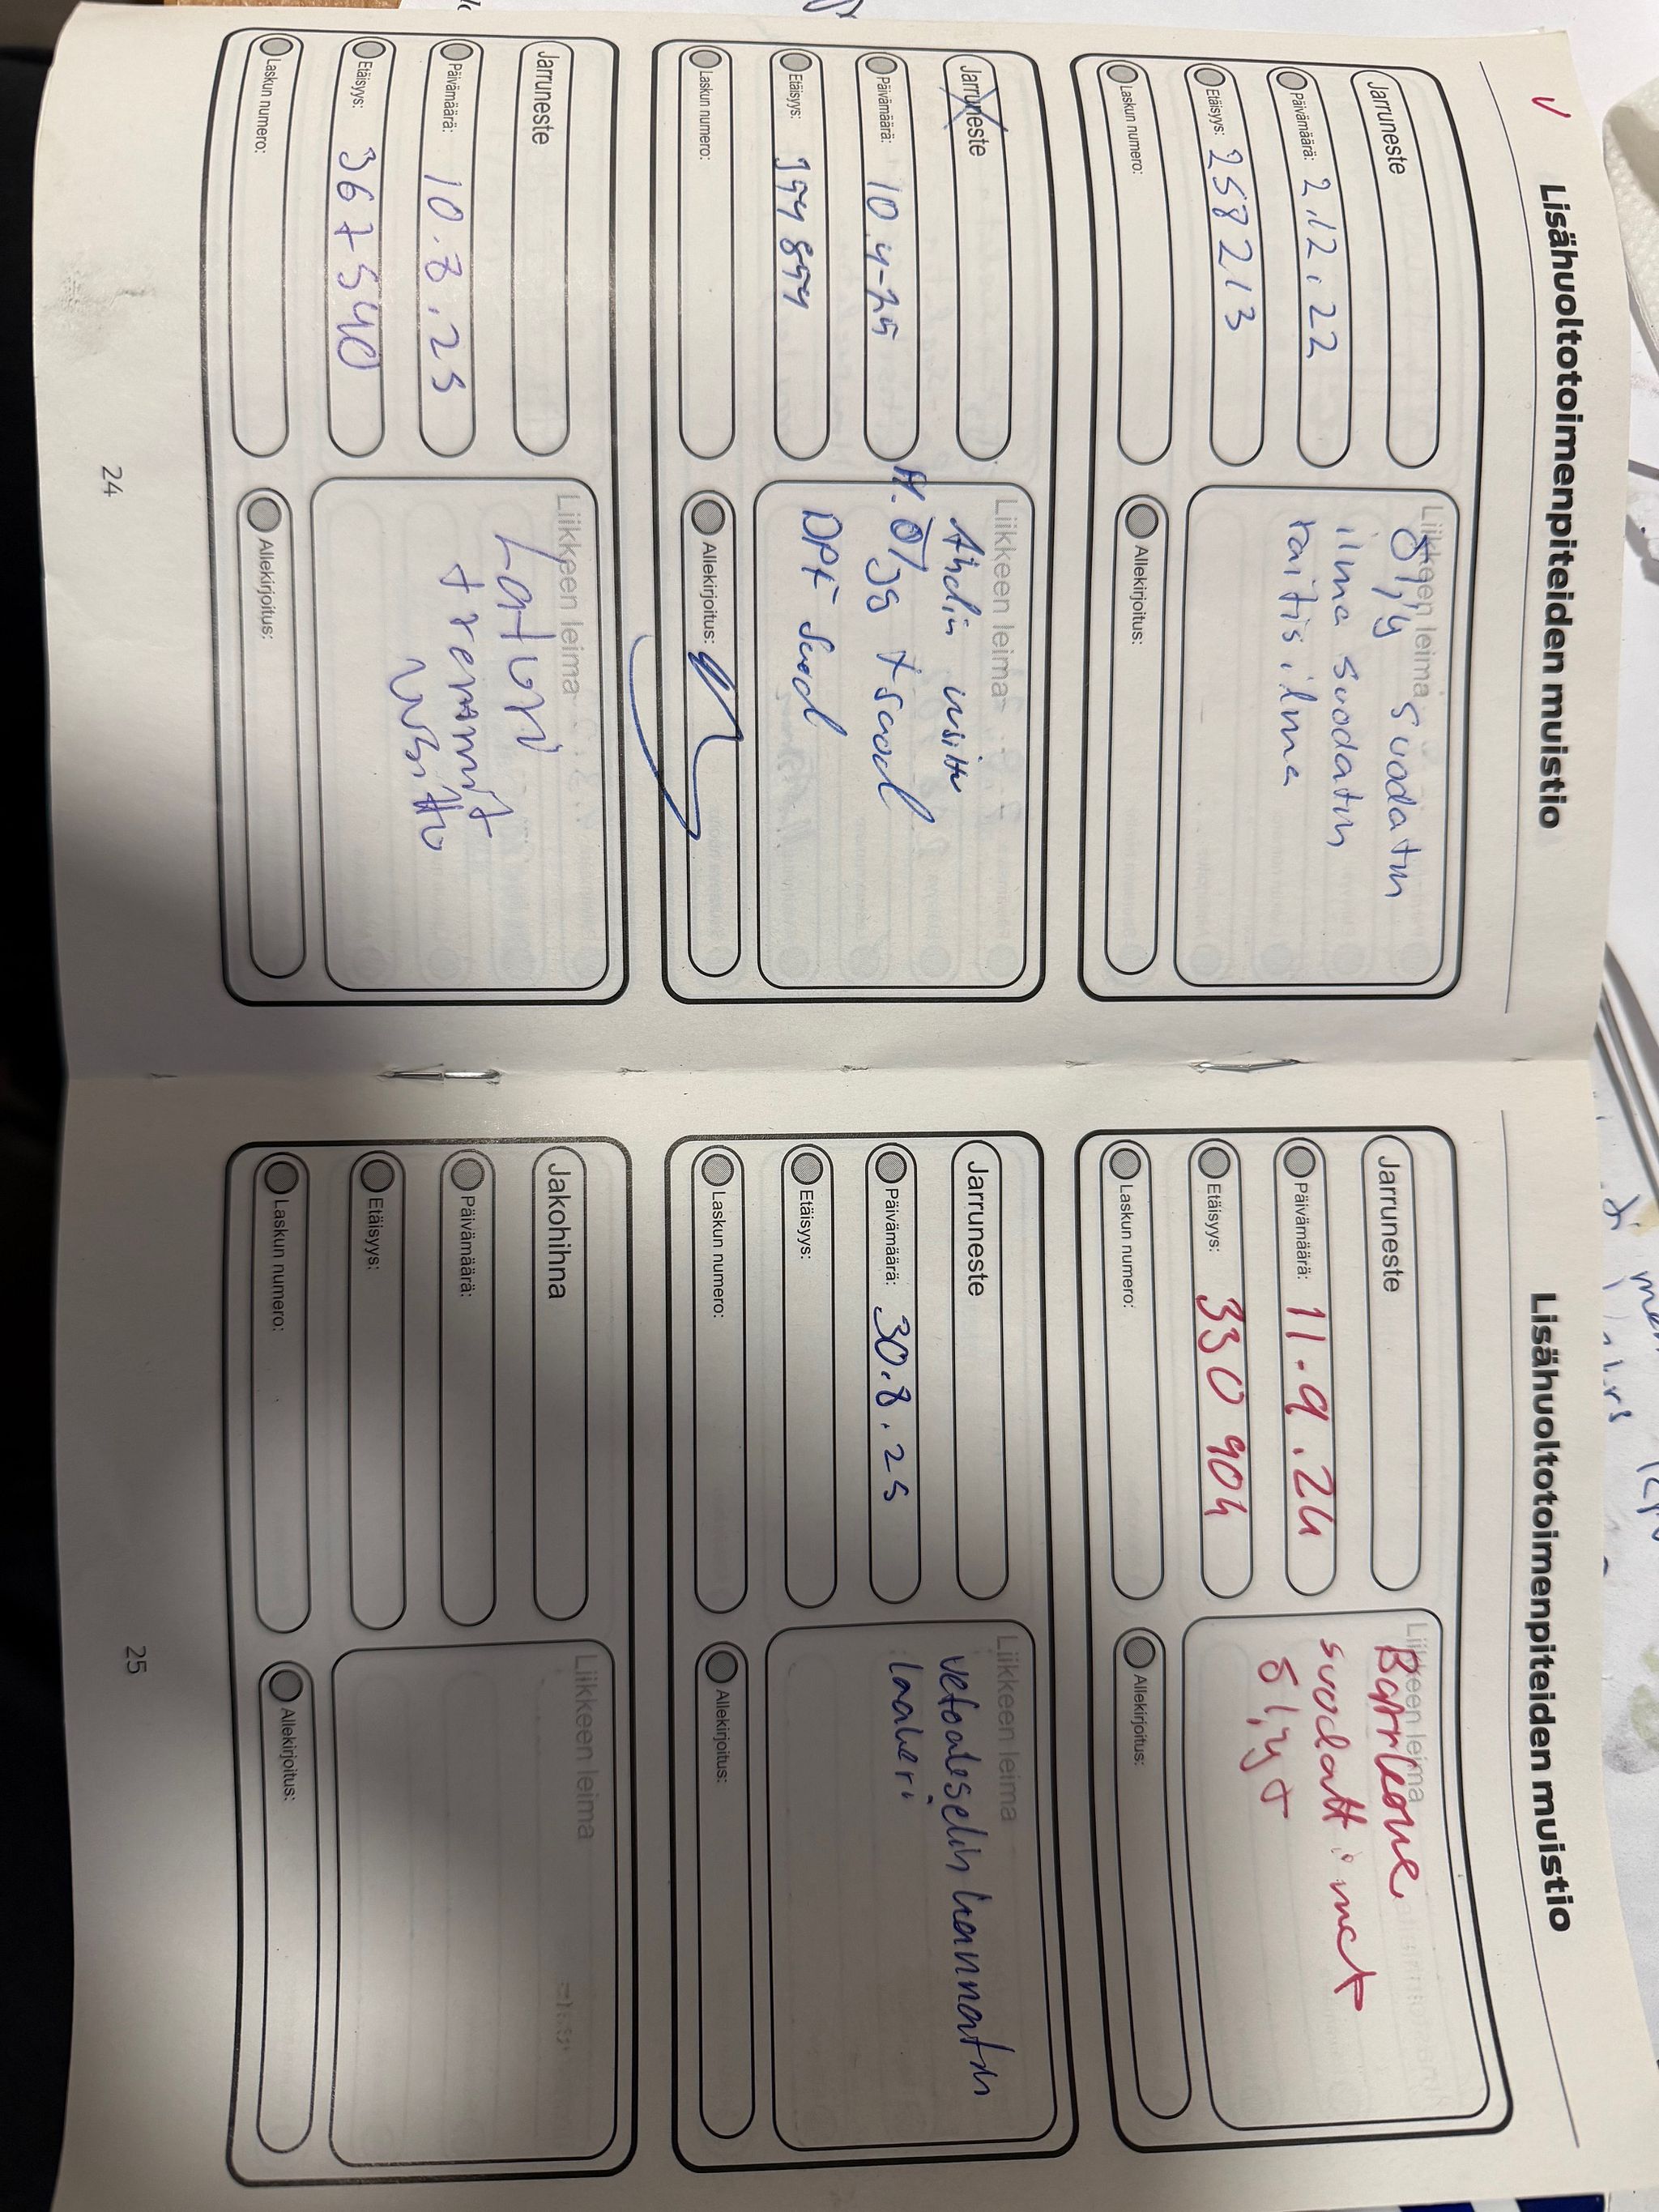 Lisähuoltotoimenpiteiden muistio
Jarruneste
Päivämäärä: 2.12.22
Etäisyys: 258213
Laskun numero:
Liikkeen leima
öljy suodatin
ilma suodatin
raitis ilma
Allekirjoitus:
Jarruneste
Päivämäärä: 10.4-25
Etäisyys:
Laskun numero:
Liikkeen leima
+ suod
DPF suod
Allekirjoitus:
Jarruneste
Päivämäärä: 10.8.25
Etäisyys: 367540
Laskun numero:
Liikkeen leima
Laturi
+ remmit
uusittu
Allekirjoitus:
24
Lisähuoltotoimenpiteiden muistio
Jarruneste
Päivämäärä: 11.9.24
Etäisyys: 330904
Laskun numero:
Liikkeen leima
suodattimet
öljyt
Allekirjoitus:
Jarruneste
Päivämäärä: 30.8.25
Etäisyys:
Laskun numero:
Liikkeen leima
vetoakselin kannatin
laakeri
Allekirjoitus:
Jakohihna
Päivämäärä:
Etäisyys:
Laskun numero:
Liikkeen leima
Allekirjoitus:
25